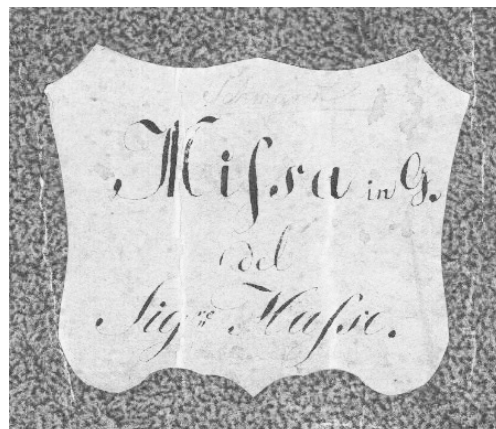 Missa in G.
del
Sigre Hasse.